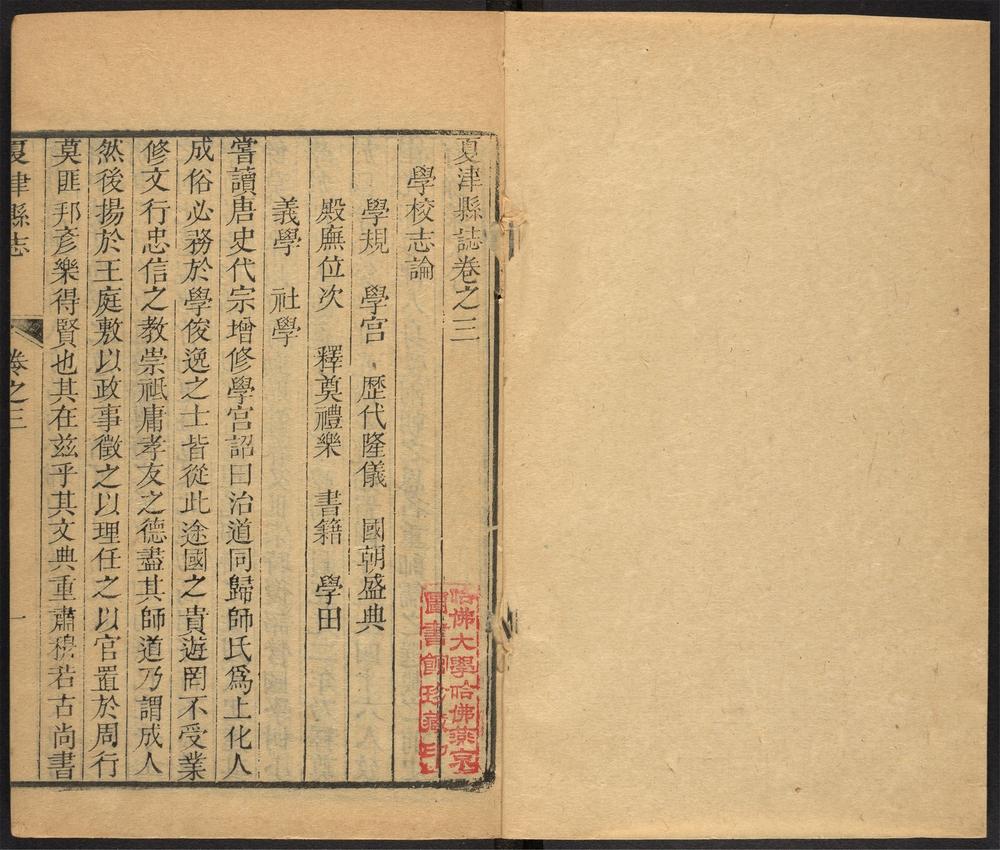 夏津縣誌卷之三
學校志論
學規 學宫 歷代隆儀 國朝盛典
殿廡位次 釋奠禮樂 書籍 學田
義學 社學
嘗讀唐史代宗增修學宫詔曰治道同歸師氏爲上化人
成俗必務於學俊逸之士皆從此途國之貴遊罔不受業
修文行忠信之教崇祗庸孝友之德盡其師道乃謂成人
然後揚於王庭敷以政事徵之以理任之以官置於周行
莫匪邦彥樂得賢也其在兹乎其文典重肅穆若古尚書
夏津縣志 卷之三 一
哈佛大學哈佛燕京
圖書館珍藏印